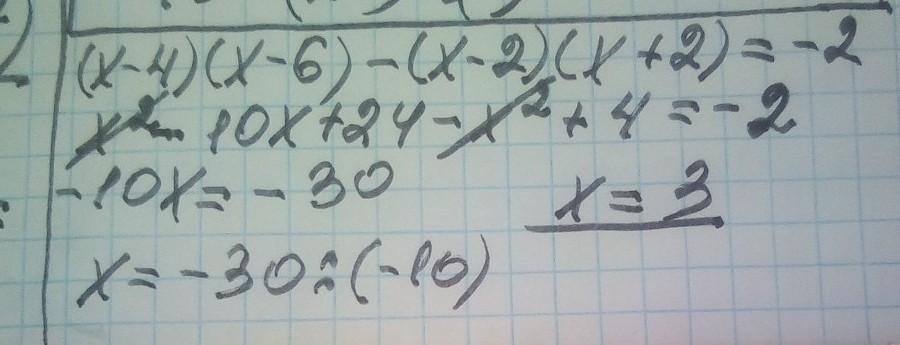 (x-4)(x-6)-(x-2)(x+2)=-2
x²-10x+24-x²+4=-2
-10x=-30
x=3
x=-30÷(-10)